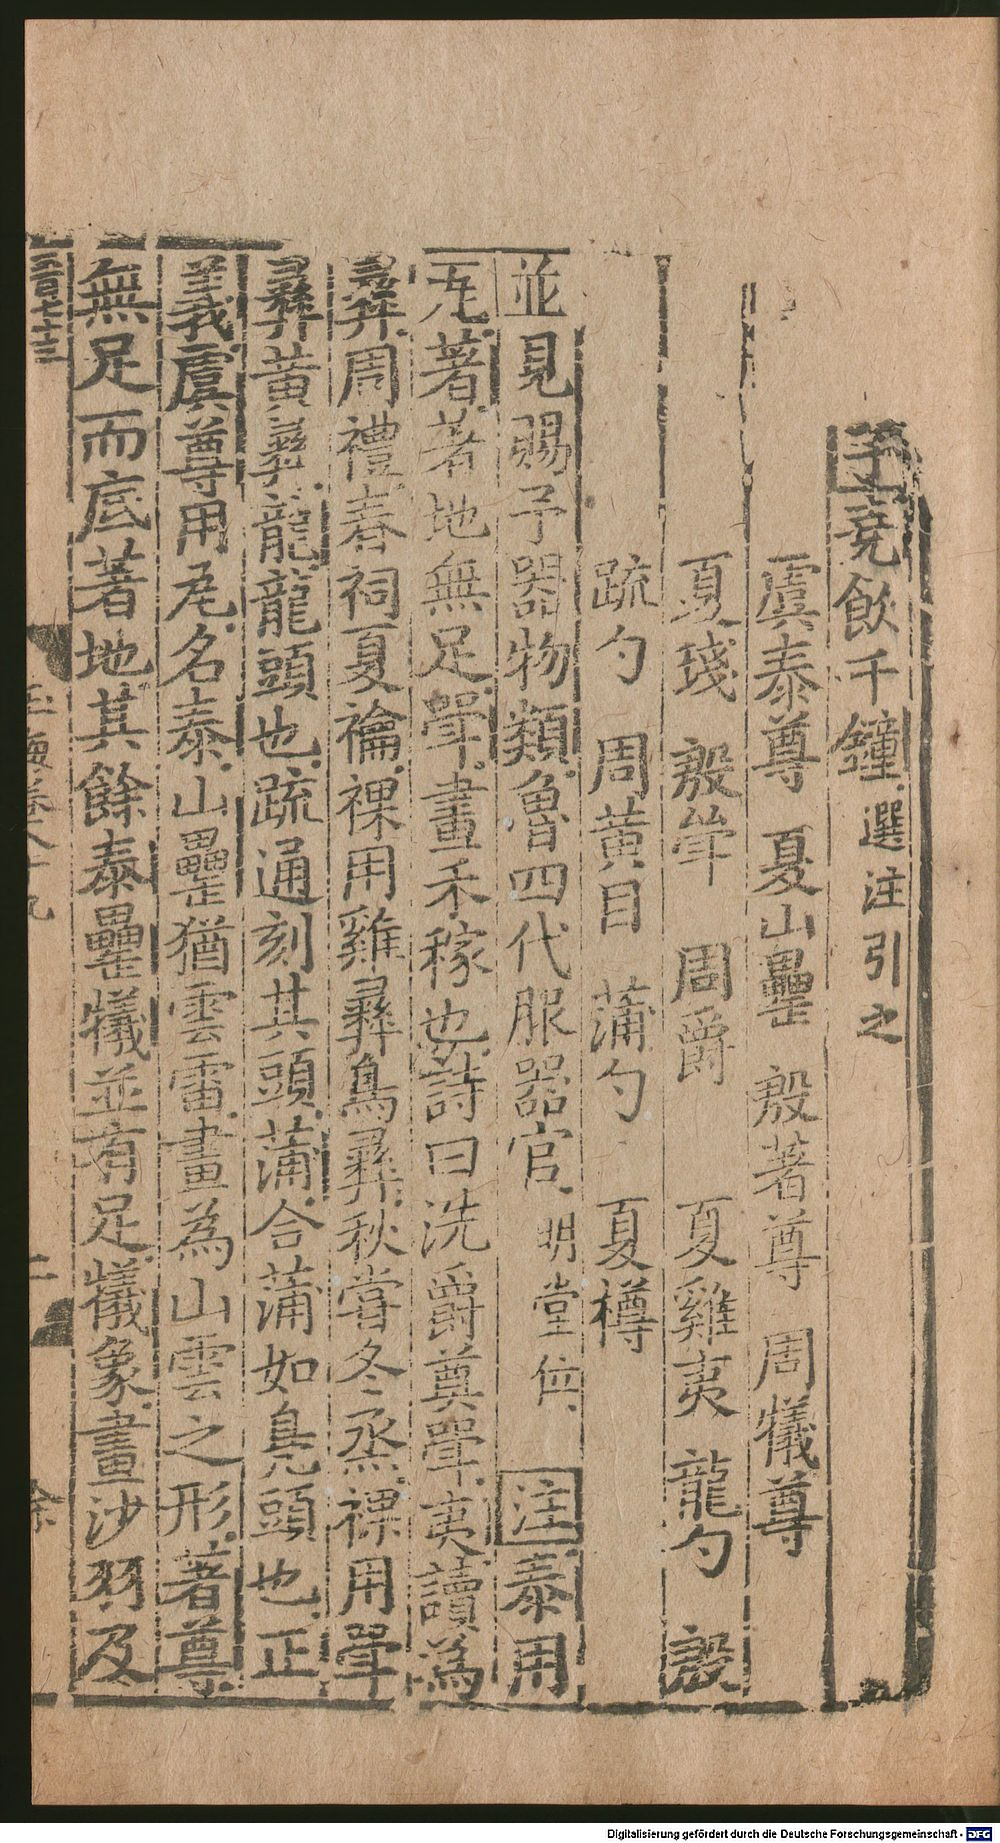 子堯飲千鐘選注引之
虞泰尊 夏山罍 殷著尊 周犧尊
夏琖 殷斝 周爵 夏雞夷 龍勺 殷
疏勺 周黃目 蒲勺 夏樽
並見賜予器物類魯四代服器官明堂位注泰用
瓦著著地無足斝畫禾稼也詩曰洗爵奠斝夷讀為
彝周禮春祠夏禴祼用雞彝鳥彝秋嘗冬烝祼用斝
彝黃彝龍龍頭也疏通刻其頭蒲合蒲如鳧頭也正
義虞尊用瓦名泰山罍猶雲雷畫為山雲之形著尊
無足而底著地其餘泰罍犧並有足犧象畫沙羽及
玉海卷八十九
二
Digitalisierung gefördert durch die Deutsche Forschungsgemeinschaft - DFG